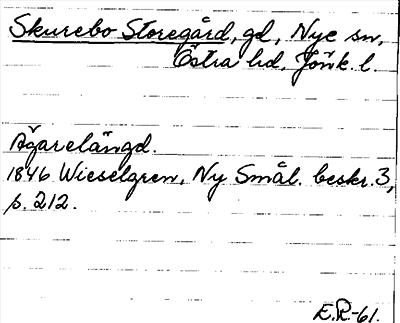 Skurebo Storegård, gd, Nye sn,
Östra hd, Jönk. l.
Ägarelängd.
1846 Wieselgren, Ny Smål. beskr. 3,
p. 212.
E.R.-61.